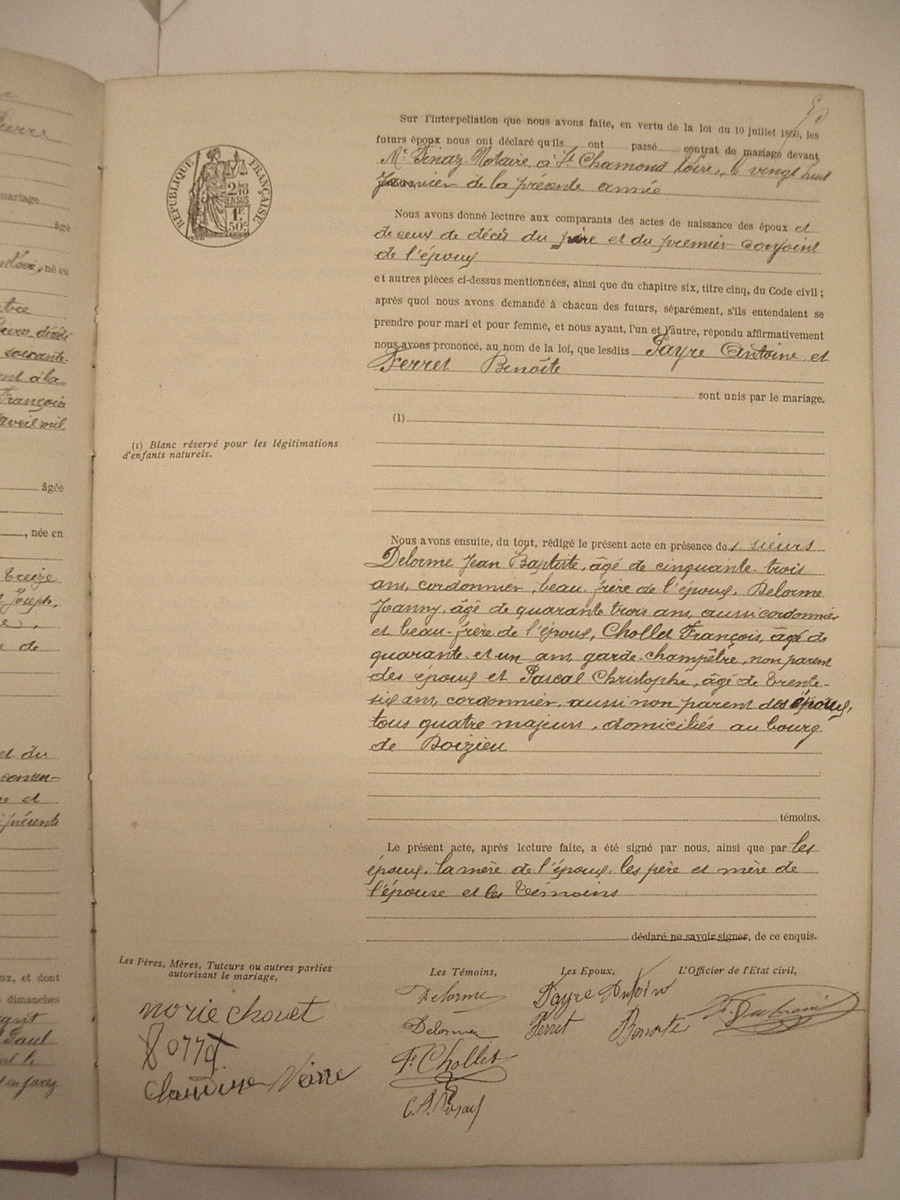 Pierre
mariage
âgé
né en
décédé
soixante
ent à la
François
avril mil
âgée
, née en
treize
Joseph,
e de
et du
conven-
e et
présente
ux, et dont
dimanches
Paul
RÉPUBLIQUE FRANÇAISE
2/10
EN SUS
1F
50C
Sur l'interpellation que nous avons faite, en vertu de la loi du 10 juillet 1850, les
futurs époux nous ont déclaré qu'ils ont passé contrat de mariage devant
Me Finaz Notaire à St Chamond Loire, le vingt huit
Janvier de la présente année
Nous avons donné lecture aux comparants des actes de naissance des époux et
de ceux de décès du père et du premier conjoint
de l'époux
et autres pièces ci-dessus mentionnées, ainsi que du chapitre six, titre cinq, du Code civil ;
après quoi nous avons demandé à chacun des futurs, séparément, s'ils entendaient se
prendre pour mari et pour femme, et nous ayant, l'un et l'autre, répondu affirmativement
nous avons prononcé, au nom de la loi, que lesdits Payre Antoine et
Ferret Benoîte
sont unis par le mariage.
(1)
(1) Blanc réservé pour les légitimations
d'enfants naturels.
Nous avons ensuite, du tout, rédigé le présent acte en présence des sieurs
Delorme Jean Baptiste, âgé de cinquante-trois
ans, cordonnier, beau-frère de l'époux, Delorme
Jeanny, âgé de quarante trois ans, aussi cordonnier
et beau-frère de l'époux, Chollet François, âgé de
quarante et un ans garde-champêtre, non parent
des époux et Pascal Christophe, âgé de trente-
six ans, cordonnier, aussi non parent des époux,
tous quatre majeurs, domiciliés au bourg
de Doizieu
témoins.
Le présent acte, après lecture faite, a été signé par nous, ainsi que par les
époux, la mère de l'époux, les père et mère de
l'épouse et les témoins
déclaré ne savoir signer, de ce enquis.
Les Pères, Mères, Tuteurs ou autres parties
autorisant le mariage,
Les Témoins,
Les Epoux,
L'Officier de l'Etat civil,
Delorme
Payre Antoine
Delorme
Ferret Benoite
F. Chollet